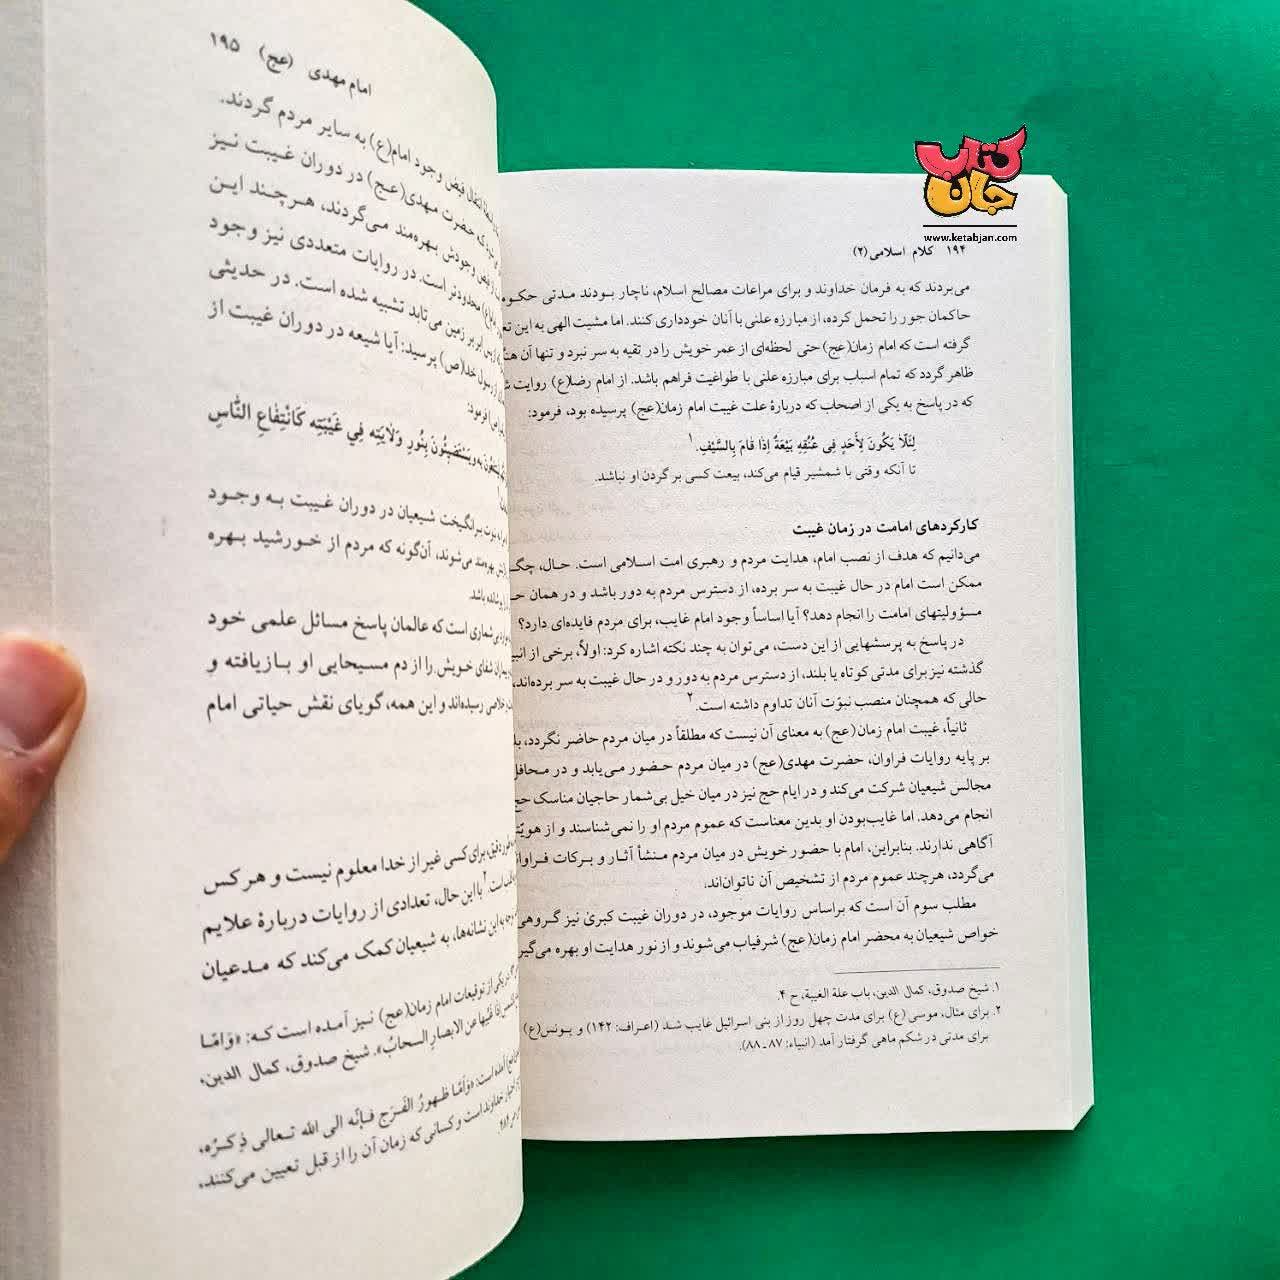 کتاب جان
www.ketabjan.com
۱۹۴ کلام اسلامی(۲)
می‌بردند که به فرمان خداوند و برای مراعات مصالح اسلام، ناچار بودند مدتی
حاکمان جور را تحمل کرده، از مبارزه علنی با آنان خودداری کنند. اما مشیت الهی به این
گرفته است که امام زمان(عج) حتی لحظه‌ای از عمر خویش را در تقیه به سر نبرد و تنها آن
ظاهر گردد که تمام اسباب برای مبارزه علنی با طواغیت فراهم باشد. از امام رضا(ع) روایت
که در پاسخ به یکی از اصحاب که دربارهٔ علت غیبت امام زمان(عج) پرسیده بود، فرمود:
لِئَلّا یَکُونَ لِأَحَدٍ فِی عُنُقِهِ بَیْعَةٌ إِذَا قَامَ بِالسَّیْفِ.۱
تا آنکه وقتی با شمشیر قیام می‌کند، بیعت کسی بر گردن او نباشد.
کارکردهای امامت در زمان غیبت
می‌دانیم که هدف از نصب امام، هدایت مردم و رهبری امت اسلامی است. حال،
ممکن است امام در حال غیبت به سر برده، از دسترس مردم به دور باشد و در همان
مسؤولیتهای امامت را انجام دهد؟ آیا اساساً وجود امام غایب، برای مردم فایده‌ای دارد؟
در پاسخ به پرسشهایی از این دست، می‌توان به چند نکته اشاره کرد: اولاً، برخی از
گذشته نیز برای مدتی کوتاه یا بلند، از دسترس مردم به دور و در حال غیبت به سر برده‌اند،
حالی که همچنان منصب نبوّت آنان تداوم داشته است.۲
ثانیاً، غیبت امام زمان(عج) به معنای آن نیست که مطلقاً در میان مردم حاضر نگردد،
بر پایه روایات فراوان، حضرت مهدی(عج) در میان مردم حضور می‌یابد و در
مجالس شیعیان شرکت می‌کند و در ایام حج نیز در میان خیل بی‌شمار حاجیان مناسک حج
انجام می‌دهد. اما غایب‌بودن او بدین معناست که عموم مردم او را نمی‌شناسند و از
آگاهی ندارند. بنابراین، امام با حضور خویش در میان مردم منشأ آثار و برکات
می‌گردد، هرچند عموم مردم از تشخیص آن ناتوان‌اند.
مطلب سوم آن است که براساس روایات موجود، در دوران غیبت کبریٰ نیز گروهی
خواص شیعیان به محضر امام زمان(عج) شرفیاب می‌شوند و از نور هدایت او بهره
۱. شیخ صدوق، کمال الدین، باب علة الغیبة، ح ۴.
۲. برای مثال، موسی (ع) برای مدت چهل روز از بنی اسرائیل غایب شد (اعراف: ۱۴۲) و یونس(ع)
برای مدتی در شکم ماهی گرفتار آمد (انبیاء: ۸۷ـ۸۸).
امام مهدی (عج) ۱۹۵
انتقال فیض وجود امام(ع) به سایر مردم گردند.
که حضرت مهدی(عج) در دوران غیبت نیز
از فیض وجودش بهره‌مند می‌گردند، هرچند این
محدودتر است. در روایات متعددی نیز وجود
ابر بر زمین می‌تابد تشبیه شده است. در حدیثی
از رسول خدا(ص) پرسید: آیا شیعه در دوران غیبت از
فرمود:
وَیَسْتَضِیئُونَ بِنُورِ وَلَایَتِه فِي غَیْبَتِه کَانْتِفَاعِ النَّاسِ
برانگیخت شیعیان در دوران غیبت به وجود
بهره‌مند می‌شوند، آن‌گونه که مردم از خورشید بهره
باشد.
شماری است که عالمان پاسخ مسائل علمی خود
شفای خویش را از دم مسیحایی او بازیافته و
خلاصی رسیده‌اند و این همه، گویای نقش حیاتی امام
دقیق، برای کسی غیر از خدا معلوم نیست و هر کس
است.۲ با این حال، تعدادی از روایات دربارهٔ علایم
به این نشانه‌ها، به شیعیان کمک می‌کند که مدعیان
یکی از توقیعات امام زمان(عج) نیز آمده است که: «وَأمّا
عن الابصارِ السحابُ». شیخ صدوق، کمال الدین،
آمده است: «وَأمّا ظهورُ الفَرَجِ فإنّه الی الله تعالی ذِکرُه،
خداوند است و کسانی که زمان آن را از قبل تعیین می‌کنند،